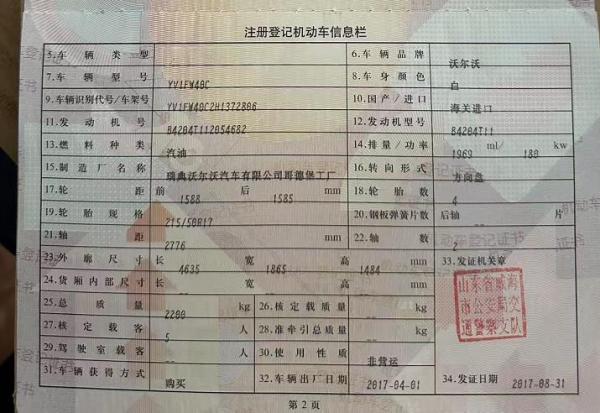 注册登记机动车信息栏
5.车辆类型 6.车辆品牌 沃尔沃
7.车辆型号 YV1FW40C 8.车身颜色 白
9.车辆识别代号/车架号 YV1FW40C2H1372806 10.国产/进口 海关进口
11.发动机号 B4204T112054682 12.发动机型号 B4204T11
13.燃料种类 汽油 14.排量/功率 1969 ml/ 180 kw
15.制造厂名称 瑞典沃尔沃汽车有限公司哥德堡工厂 16.转向形式 方向盘
17.轮距 前 1588 后 1585 mm 18.轮胎数 4
19.轮胎规格 215/50R17 20.钢板弹簧片数 后轴 -- 片
21.轴距 2776 mm 22.轴数 2
23.外廓尺寸 长 4635 宽 1865 高 1484 mm 33.发证机关章
24.货厢内部尺寸 长 -- 宽 -- 高 -- mm
25.总质量 2200 kg 26.核定载质量 -- kg
27.核定载客 5 人 28.准牵引总质量 -- kg
29.驾驶室载客 -- 人 30.使用性质 非营运
31.车辆获得方式 购买 32.车辆出厂日期 2017-04-01 34.发证日期 2017-08-31
山东省威海
市公安局交
通警察支队
第2页